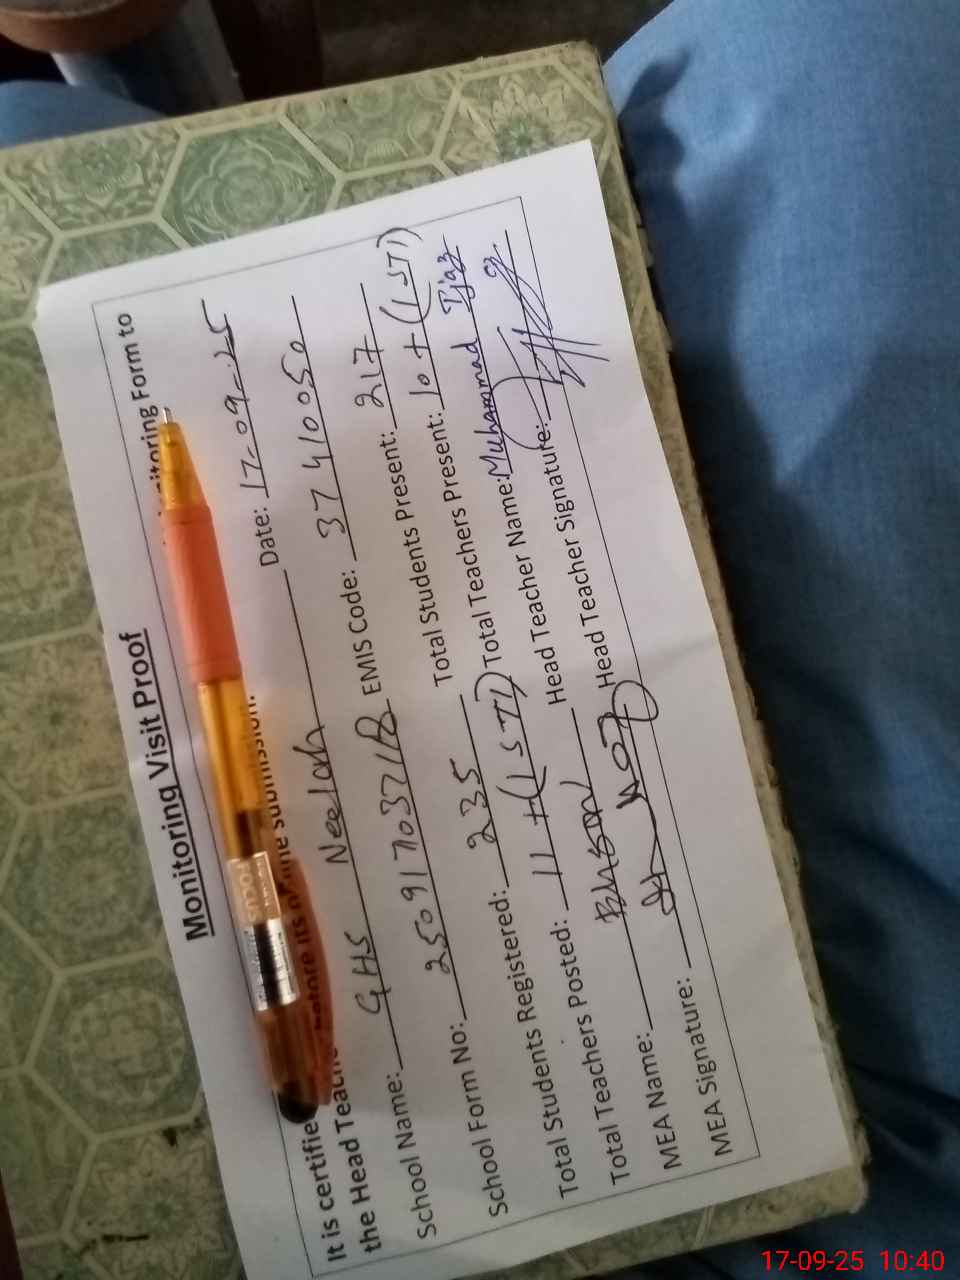 Monitoring Visit Proof
It is certified Monitoring Form to
the Head Teacher before its online submission. Date: 17-09-25
School Name: GHS Neelah EMIS Code: 37410050
School Form No: Total Students Present: 217
Total Students Registered: 235 Total Teachers Present: 10 + (1 STI)
Total Teachers Posted: 11 + (1 STI) Head Teacher Name: Muhammad Ijaz
MEA Name: Head Teacher Signature:
MEA Signature:
17-09-25 10:40